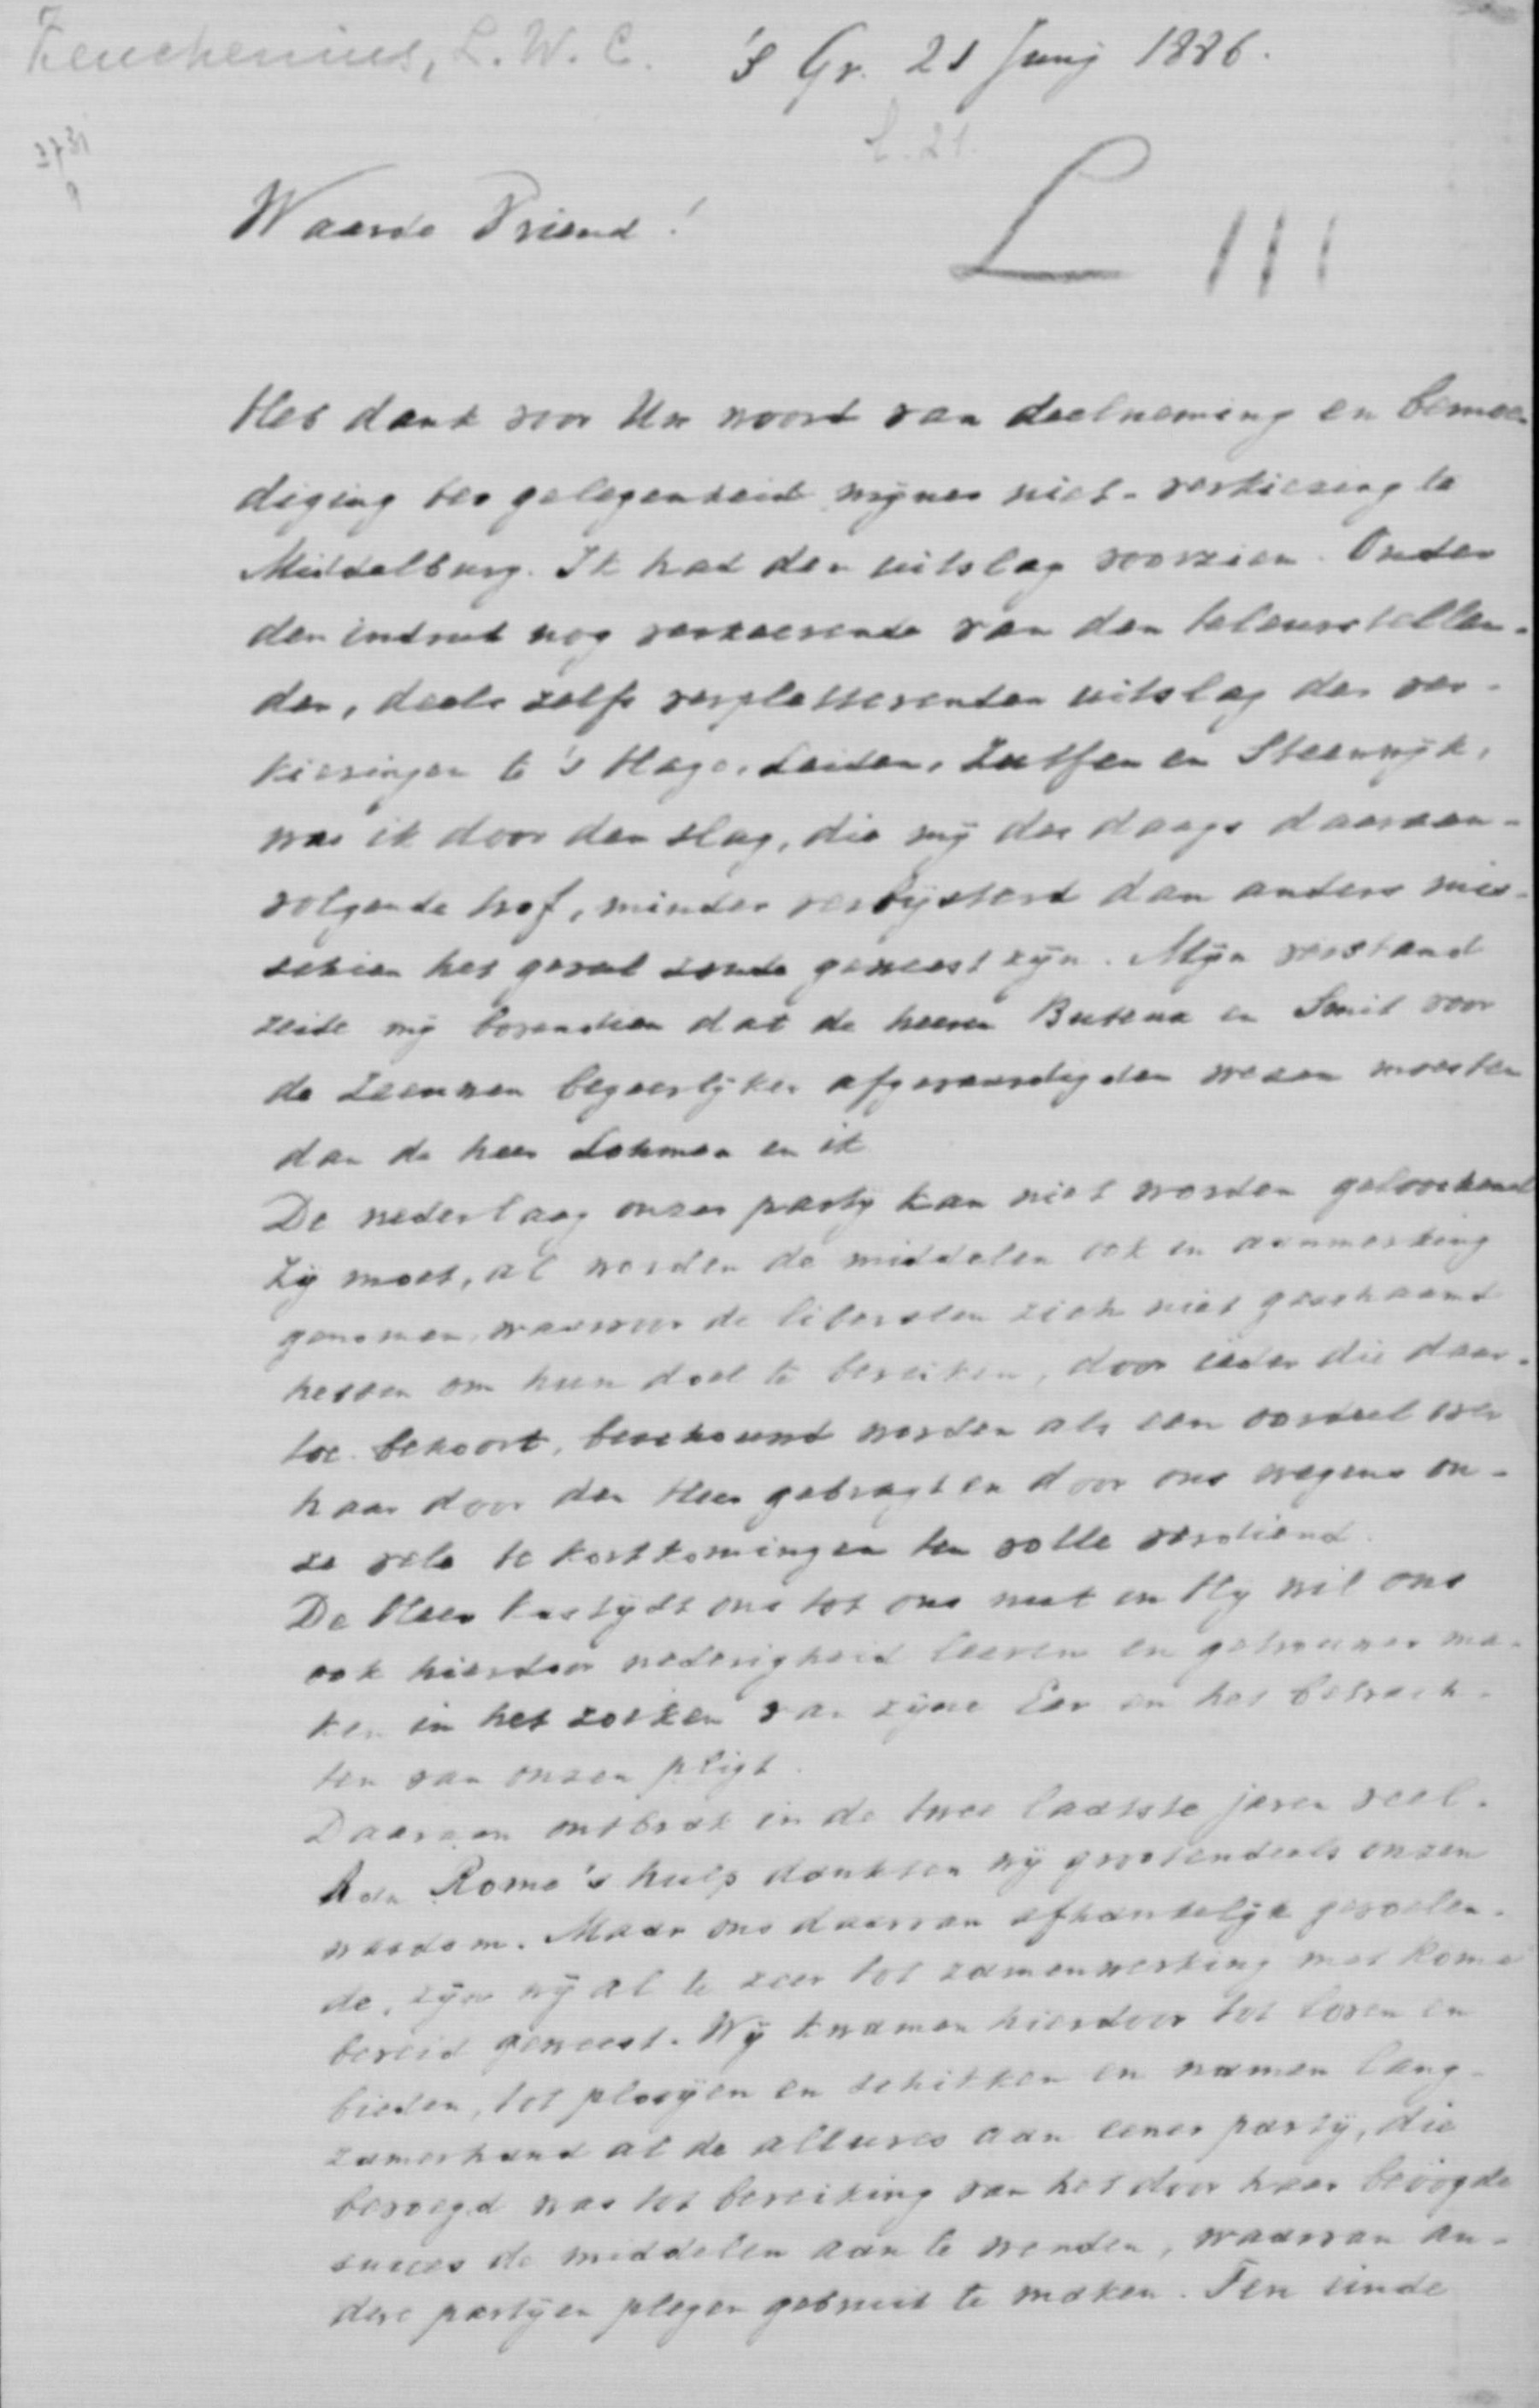 Keuchenius, L. W. C.
's Gr. 21 Junij 1886.
L. 21.
Waarde Vriend!
L III
Heb dank voor Uw woord van deelneming en bemoe-
diging ter gelegenheid mijner niet-verkiezing te
Middelburg. Ik had den uitslag voorzien. Onder
den indruk nog verkeerende van den teleurstellen-
den, deels zelfs verpletterenden uitslag der ver-
kiezingen te 's Hage, Leiden, Zutfen en Steenwijk,
was ik door den slag, die mij des daags daaraan-
volgende trof, minder verbijsterd dan anders mis-
schien het geval zoude geweest zijn. Mijn verstand
zeide mij bovendien dat de heeren Buteux en Smit voor
de Zeeuwen begeerlijker afgevaardigden wezen moesten
dan de heer Lohman en ik
De nederlaag onzer partij kan niet worden geloochend
Zij moet, al worden de middelen ook in aanmerking
genomen, waarvoor de liberalen zich niet geschaamd
hebben om hun doel te bereiken, door ieder die daar-
toe behoort, beschouwd worden als een oordeel over
haar door den Heer gebragt en door ons wegens on-
ze vele te kortkomingen ten volle verdiend.
De Heer kastijdt ons tot ons nut en Hij wil ons
ook hierdoor nederigheid leeren en getrouwer ma-
ken in het zoeken van zijne Eer en het betrach-
ten van onzen pligt.
Daaraan ontbrak in de twee laatste jaren veel.
Aan Rome's hulp dankten wij grootendeels onzen
wasdom. Maar ons daarvan afhankelijk gevoelen-
de, zijn wij al te zeer tot zamenwerking met Rome
bereid geweest. Wij kwamen hierdoor tot loven en
bieden, tot plooijen en schikken en namen lang-
zamerhand al de allures aan eener partij, die
bevoegd was tot bereiking van het door haar beoogde
succes de middelen aan te wenden, waarvan an-
dere partijen plegen gebruik te maken. Ten einde